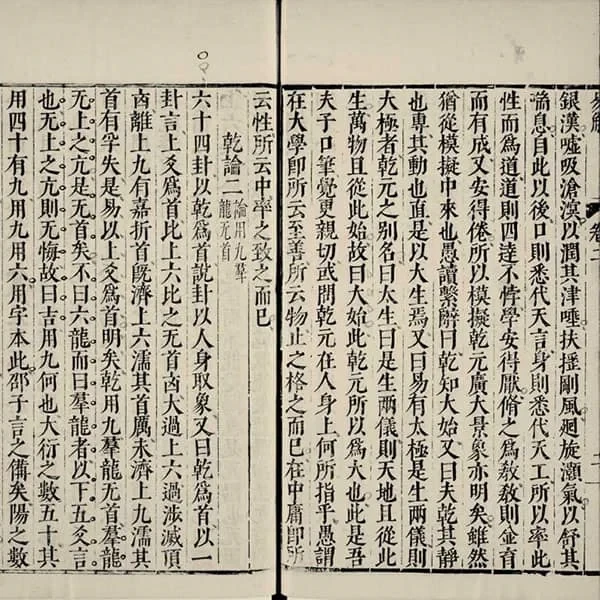 易解 卷二
銀漢噓吸滄溟以潤其津唾扶搖剛風𢌞旋灝氣以舒其
喘息自此以後口則悉代天言身則悉代天工所以率此
性而為道道則四達不悖學安得厭脩之為教教則並育
而有成又安得倦所以模擬乾元廣大景象亦明矣雖然
猶從模擬中來也愚讀繫辭曰乾知大始又曰夫乾其靜
也專其動也直是以大生焉又曰易有太極是生兩儀則
大極者乾元之别名曰太生曰是生兩儀則天地且從此
生萬物且從此始故曰大始此乾元所以為大也此是吾
夫子口筆覺更親切武問乾元在人身上何所指乎愚謂
在大學卽所云至善所云物止之格之而已在中庸卽所
云性所云中率之致之而已
乾論二 論用九羣龍无首
六十四卦以乾爲首說卦以人身取象又曰乾爲首以一
卦言上爻爲首比上六比之无首㐫大過上六過涉滅頂
㐫離上九有嘉折首旣濟上六濡其首厲未濟上九濡其
首有孚失是易以上爻爲首明矣乾用九羣龍无首羣龍
无上之亢是无首矣不曰六龍而曰羣龍者以下五爻言
也无上之亢則无悔故曰吉用九何也大衍之數五十其
用四十有九用九用六用字本此邵子言之備矣陽之數